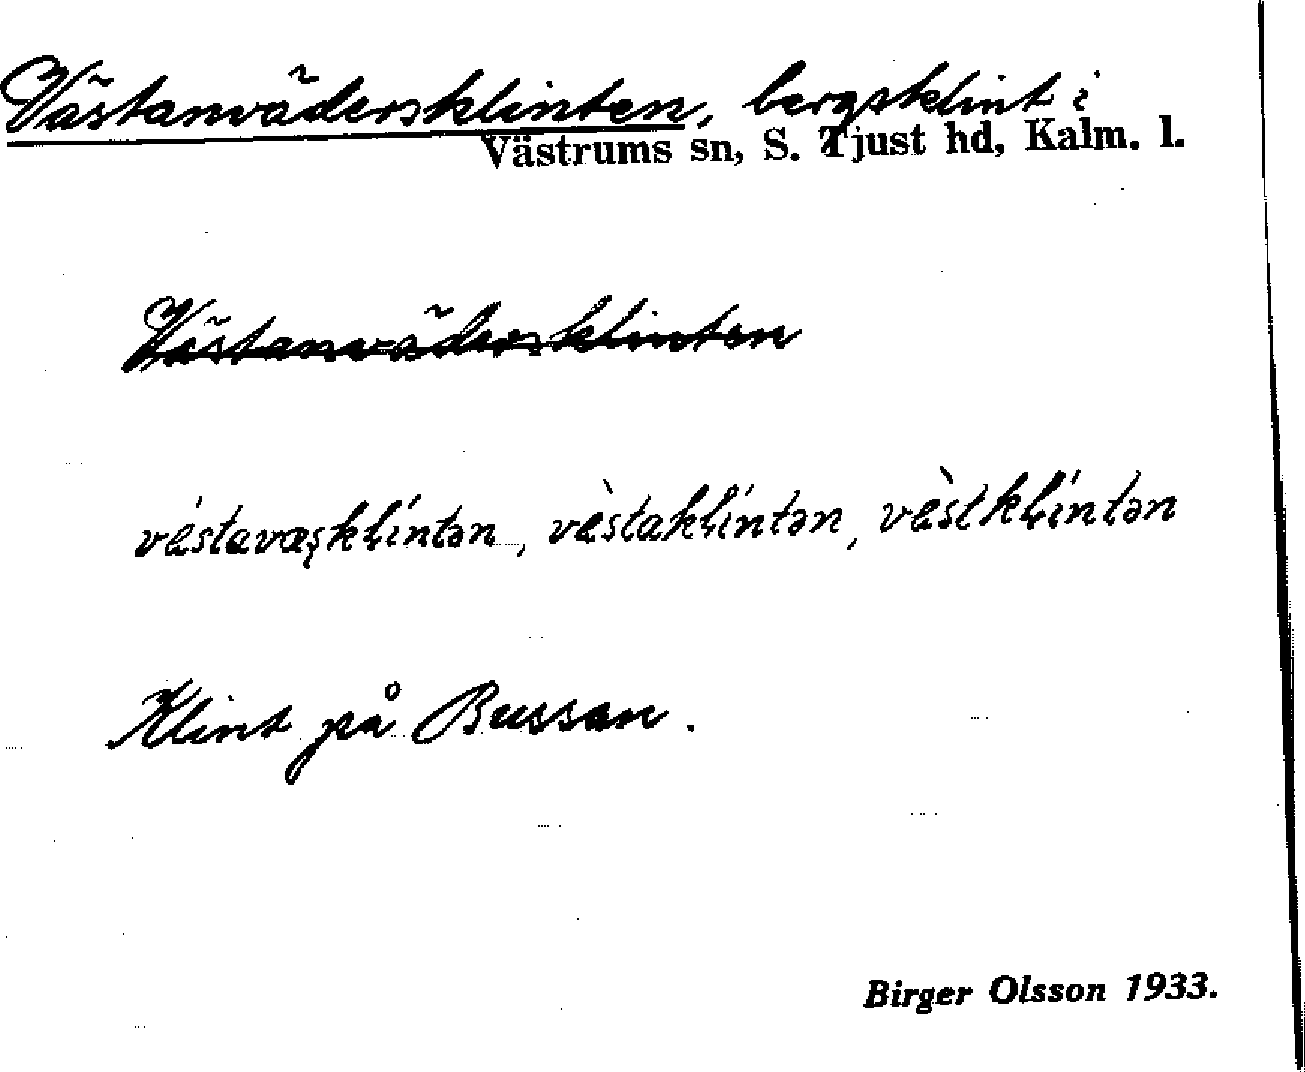 Västanvädersklinten, bergsklint i
Västrums sn, S. Tjust hd, Kalm. l.
Västanvädersklinten
véstavæşkḷíntən, vèstakḷíntən, vèstkḷíntən
Klint på Bussan.
Birger Olsson 1933.